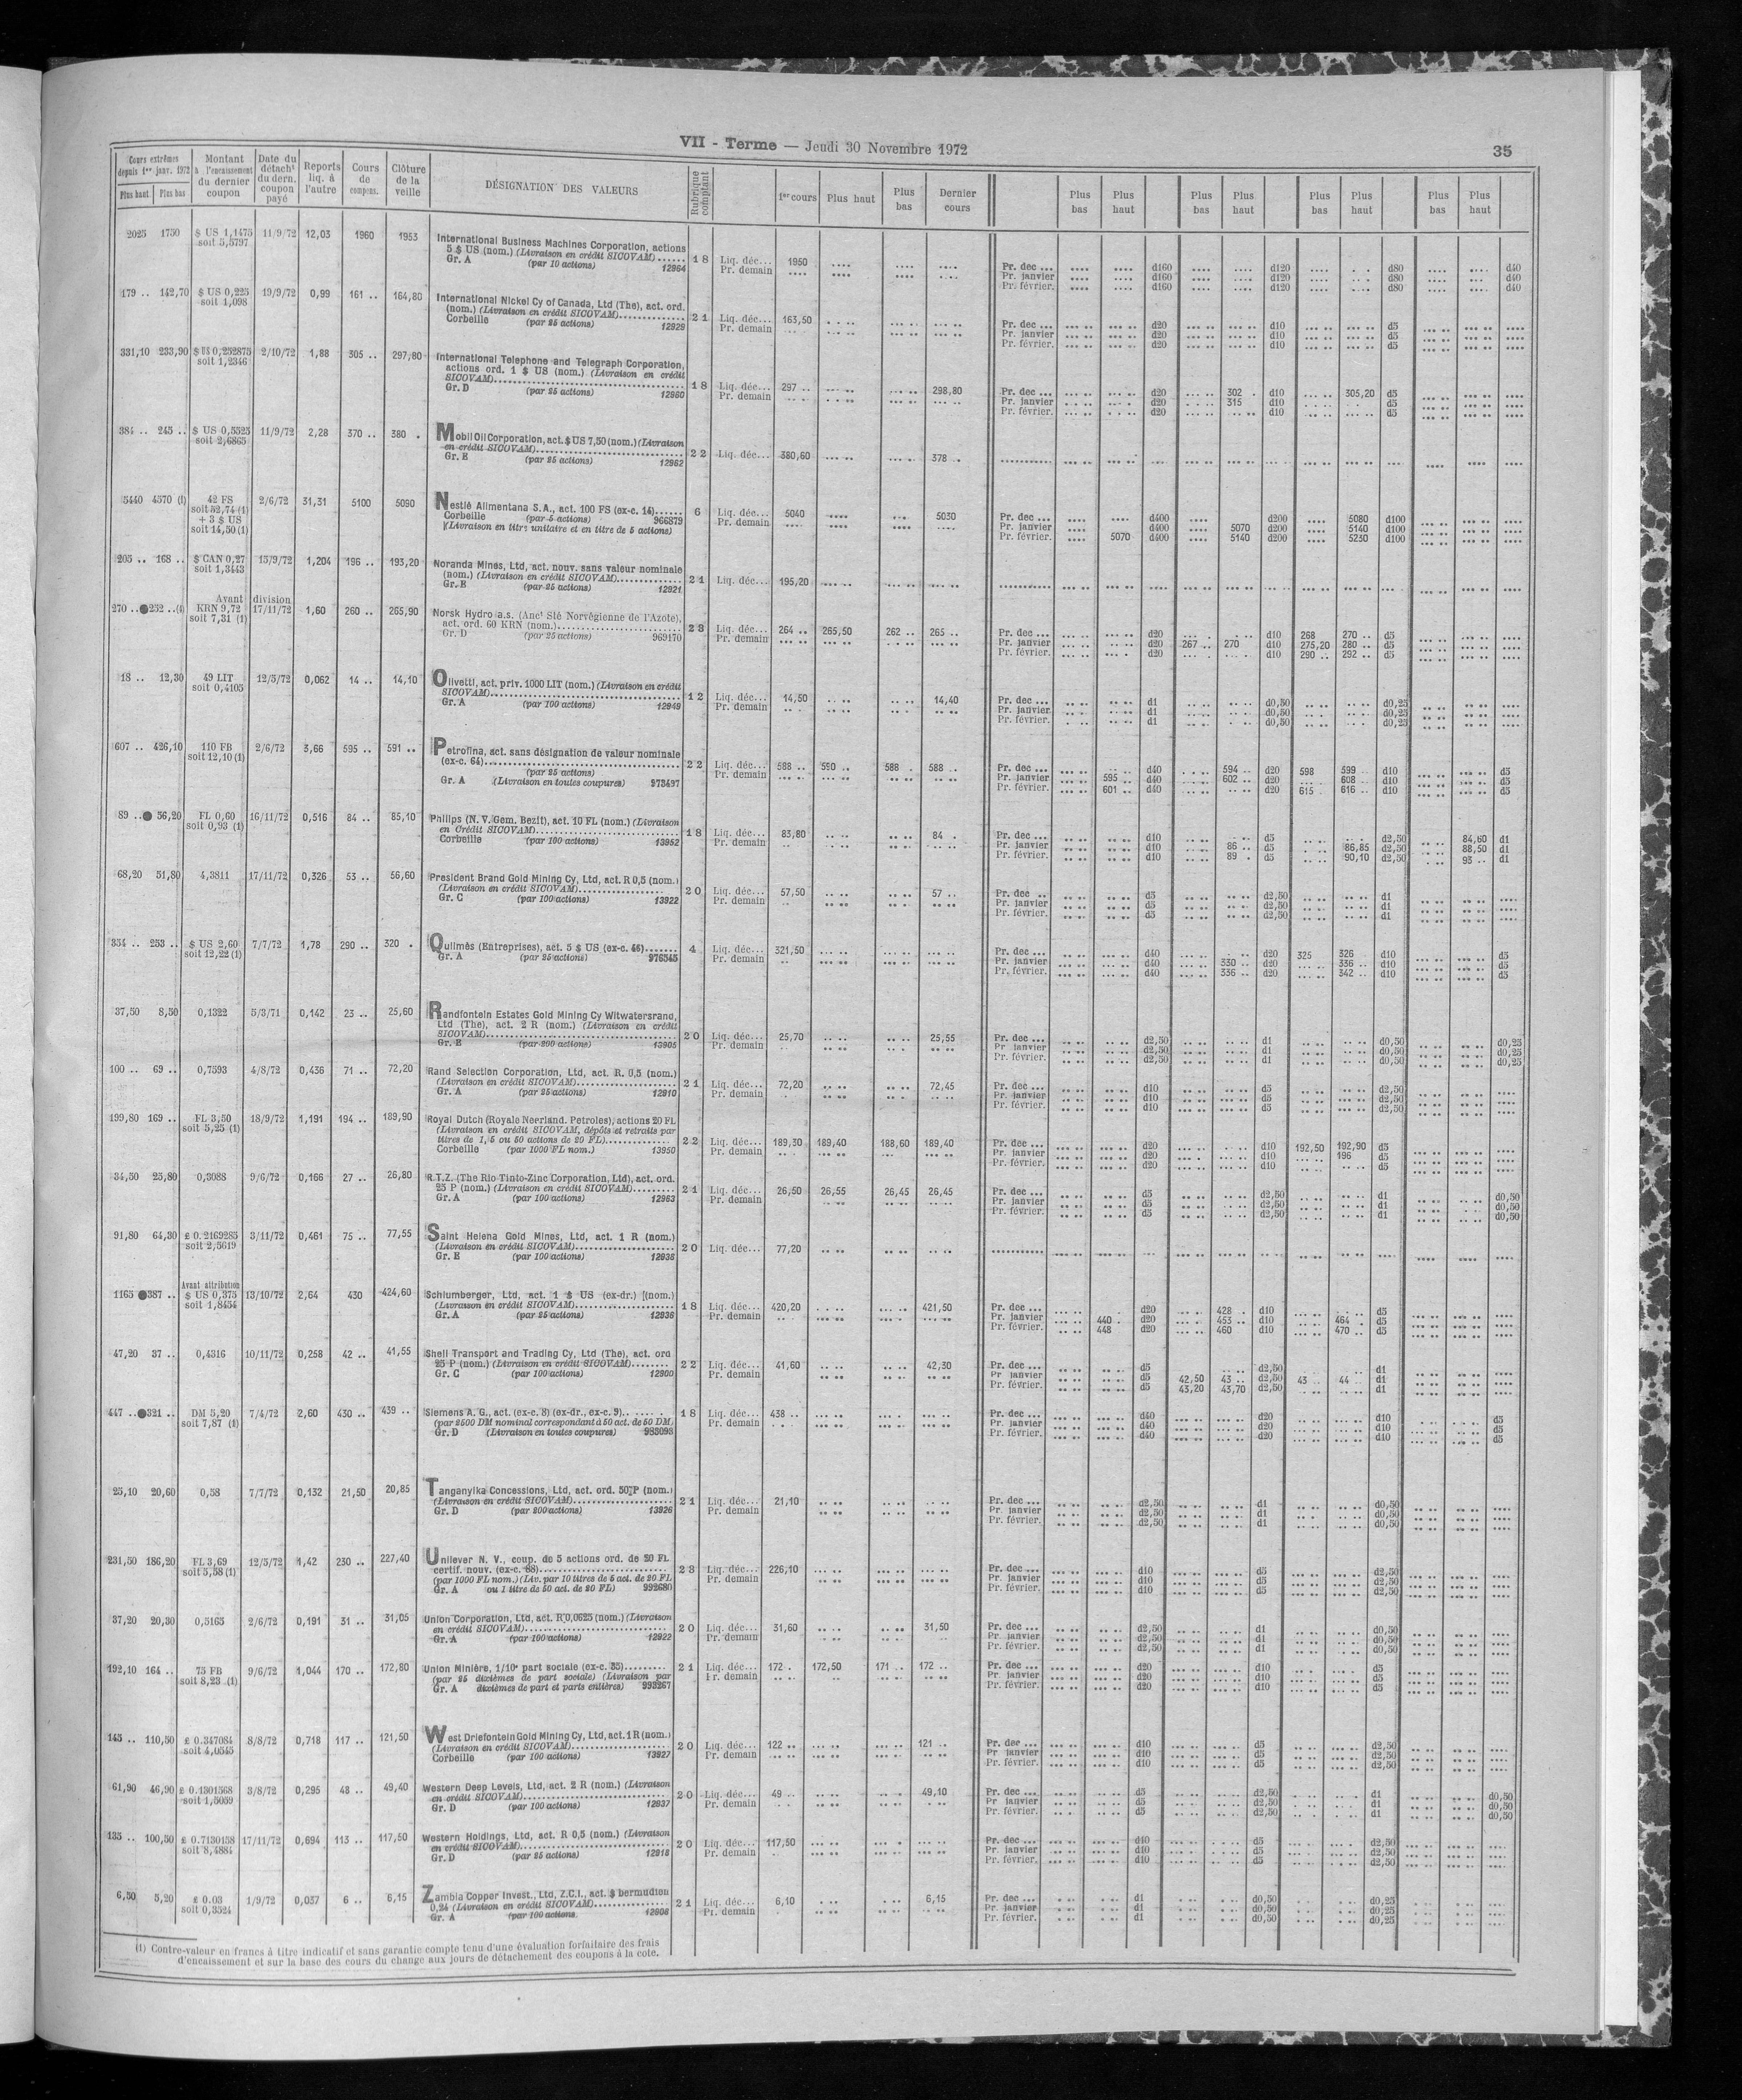 VII - Terme — Jeudi 30 Novembre 1972
35
Cours extrêmes depuis 1er janv. 1972 Plus haut Plus bas | Montant à l'encaissement du dernier coupon | Date du détacht du dern. coupon payé | Reports liq. à l'autre | Cours de compens. | Clôture de la veille | DÉSIGNATION DES VALEURS | Rubrique comptant | 1er cours | Plus haut | Plus bas | Dernier cours | Plus bas | Plus haut | Plus bas | Plus haut | Plus bas | Plus haut | Plus bas | Plus haut
2025 1750 $ US 1,1475 soit 5,5797 11/9/72 12,03 1960 1953
International Business Machines Corporation, actions
5 $ US (nom.) (Livraison en crédit SICOVAM)......
Gr. A (par 10 actions) 12964
18 Liq. déc... 1950
Pr. demain
Pr. dec ... d160 d120 d80 d40
Pr. janvier d160 d120 d80 d40
Pr. février. d160 d120 d80 d40
179 .. 142,70 $ US 0,225 soit 1,098 19/9/72 0,99 161 .. 164,80
International Nickel Cy of Canada, Ltd (The), act. ord.
(nom.) (Livraison en crédit SICOVAM)
Corbeille (par 25 actions) 12929
21 Liq. déc... 163,50
Pr. demain
Pr. dec ... d20 d10 d5
Pr. janvier d20 d10 d5
Pr. février. d20 d10 d5
331,10 233,90 $ US 0,252875 soit 1,2346 2/10/72 1,88 305 .. 297,80
International Telephone and Telegraph Corporation,
actions ord. 1 $ US (nom.) (Livraison en crédit
SICOVAM)
Gr. D (par 25 actions) 12960
18 Liq. déc... 297 .. 298,80
Pr. demain
Pr. dec ... d20 302 . d10 305,20 d5
Pr. janvier d20 315 d10 d5
Pr. février. d20 d10 d5
384 .. 245 .. $ US 0,5525 soit 2,6865 11/9/72 2,28 370 .. 380 .
Mobil Oil Corporation, act. $ US 7,50 (nom.) (Livraison
en crédit SICOVAM)
Gr. E (par 25 actions) 12962
22 Liq. déc... 380,60 378 ..
5440 4570 (1) 42 FS soit 52,74 (1) + 3 $ US soit 14,50 (1) 2/6/72 31,31 5100 5090
Nestlé Alimentana S.A., act. 100 FS (ex-c. 14)......
Corbeille (par 5 actions) 966879
(Livraison en titre unitaire et en titre de 5 actions)
6 Liq. déc... 5040 5030
Pr. demain
Pr. dec ... d400 d200 5080 d100
Pr. janvier d400 5070 d200 5140 d100
Pr. février. 5070 d400 5140 d200 5230 d100
205 .. 168 .. $ CAN 0,27 soit 1,3443 15/9/72 1,204 196 .. 193,20
Noranda Mines, Ltd, act. nouv. sans valeur nominale
(nom.) (Livraison en crédit SICOVAM)
Gr. E (par 25 actions) 12921
21 Liq. déc... 195,20
Avant division
270 ..●252 ..(1) KRN 9,72 soit 7,31 (1) 17/11/72 1,60 260 .. 265,90
Norsk Hydro a.s. (Anct Sté Norvégienne de l'Azote),
act. ord. 60 KRN (nom.)
Gr. D (par 25 actions) 969170
23 Liq. déc... 264 .. 265,50 262 .. 265 ..
Pr. demain
Pr. dec ... d20 d10 268 270 .. d5
Pr. janvier d20 267 .. 270 d10 275,20 280 .. d5
Pr. février. d20 d10 290 .. 292 .. d5
18 .. 12,30 49 LIT soit 0,4105 12/5/72 0,062 14 .. 14,10
Olivetti, act. priv. 1000 LIT (nom.) (Livraison en crédit
SICOVAM)
Gr. A (par 100 actions) 12949
12 Liq. déc... 14,50 14,40
Pr. demain
Pr. dec ... d1 d0,50 d0,25
Pr. janvier d1 d0,50 d0,25
Pr. février. d1 d0,50 d0,25
607 .. 426,10 110 FB soit 12,10 (1) 2/6/72 3,66 595 .. 591 ..
Petrofina, act. sans désignation de valeur nominale
(ex-c. 64)
(par 25 actions)
Gr. A (Livraison en toutes coupures) 973497
22 Liq. déc... 588 .. 590 .. 588 . 588 ..
Pr. demain
Pr. dec ... d40 594 .. d20 598 599 .. d10 d5
Pr. janvier 595 .. d40 602 .. d20 608 .. d10 d5
Pr. février. 601 .. d40 d20 615 . 616 .. d10 d5
89 ..● 56,20 FL 0,60 soit 0,93 (1) 16/11/72 0,516 84 .. 85,10
Philips (N. V. Gem. Bezit), act. 10 FL (nom.) (Livraison
en Crédit SICOVAM)
Corbeille (par 100 actions) 13952
18 Liq. déc... 83,80 84 .
Pr. demain
Pr. dec ... d10 d5 d2,50 84,60 d1
Pr. janvier d10 86 .. d5 86,85 d2,50 88,50 d1
Pr. février. d10 89 . d5 90,10 d2,50 93 .. d1
68,20 51,80 4,3811 17/11/72 0,326 53 .. 56,60
President Brand Gold Mining Cy, Ltd, act. R 0,5 (nom.)
(Livraison en crédit SICOVAM)
Gr. C (par 100 actions) 13922
20 Liq. déc... 57,50 57 ..
Pr. demain
Pr. dec .. d5 d2,50 d1
Pr. janvier d5 d2,50 d1
Pr. février. d5 d2,50 d1
354 .. 253 .. $ US 2,60 soit 12,22 (1) 7/7/72 1,78 290 .. 320 .
Quilmès (Entreprises), act. 5 $ US (ex-c. 46).......
Gr. A (par 25 actions) 976545
4 Liq. déc... 321,50
Pr. demain
Pr. dec ... d40 d20 325 326 d10 d5
Pr. janvier d40 330 .. d20 336 .. d10 d5
Pr. février. d40 336 .. d20 342 .. d10 d5
37,50 8,50 0,1322 5/3/71 0,142 23 .. 25,60
Randfontein Estates Gold Mining Cy Witwatersrand,
Ltd (The), act. 2 R (nom.) (Livraison en crédit
SICOVAM)
Gr. E (par 200 actions) 13905
20 Liq. déc... 25,70 25,55
Pr. demain
Pr. dec ... d2,50 d1 d0,50 d0,25
Pr janvier d2,50 d1 d0,50 d0,25
Pr. février. d2,50 d1 d0,50 d0,25
100 .. 69 .. 0,7593 4/8/72 0,436 71 .. 72,20
Rand Selection Corporation, Ltd, act. R. 0,5 (nom.)
(Livraison en crédit SICOVAM)
Gr. A (par 25 actions) 12910
21 Liq. déc... 72,20 72,45
Pr. demain
Pr. dec ... d10 d5 d2,50
Pr. janvier d10 d5 d2,50
Pr. février. d10 d5 d2,50
199,80 169 .. FL 3,50 soit 5,25 (1) 18/9/72 1,191 194 .. 189,90
Royal Dutch (Royale Neerland. Petroles), actions 20 FL
(Livraison en crédit SICOVAM, dépôts et retraits par
titres de 1, 5 ou 50 actions de 20 FL)
Corbeille (par 1000 FL nom.) 13950
22 Liq. déc... 189,30 189,40 188,60 189,40
Pr. demain
Pr. dec ... d20 d10 192,50 192,90 d5
Pr. janvier d20 d10 196 d5
Pr. février. d20 d10 d5
34,50 25,80 0,3088 9/6/72 0,166 27 .. 26,80
R.T.Z. (The Rio Tinto-Zinc Corporation, Ltd), act. ord.
25 P (nom.) (Livraison en crédit SICOVAM)
Gr. A (par 100 actions) 12963
21 Liq. déc... 26,50 26,55 26,45 26,45
Pr. demain
Pr. dec ... d5 d2,50 d1 d0,50
Pr. janvier d5 d2,50 d1 d0,50
Pr. février. d5 d2,50 d1 d0,50
91,80 64,30 £ 0.2169285 soit 2,5619 3/11/72 0,461 75 .. 77,55
Saint Helena Gold Mines, Ltd, act. 1 R (nom.)
(Livraison en crédit SICOVAM)
Gr. E (par 100 actions) 12938
20 Liq. déc... 77,20
Avant attribution
1165 ●387 .. $ US 0,375 soit 1,8454 13/10/72 2,64 430 424,60
Schlumberger, Ltd, act. 1 $ US (ex-dr.) (nom.)
(Livraison en crédit SICOVAM)
Gr. A (par 25 actions) 12936
18 Liq. déc... 420,20 421,50
Pr. demain
Pr. dec ... d20 428 . d10 d5
Pr. janvier 440 . d20 453 .. d10 464 . d5
Pr. février. 448 d20 460 d10 470 .. d5
47,20 37 .. 0,4316 10/11/72 0,258 42 .. 41,55
Shell Transport and Trading Cy, Ltd (The), act. ord
25 P (nom.) (Livraison en crédit SICOVAM)........
Gr. C (par 100 actions) 12900
22 Liq. déc... 41,60 42,30
Pr. demain
Pr. dec ... d5 d2,50 d1
Pr janvier d5 42,50 43 .. d2,50 43 .. 44 .. d1
Pr. février. d5 43,20 43,70 d2,50 d1
447 ..●321 .. DM 5,20 soit 7,87 (1) 7/4/72 2,60 430 .. 439 ..
Siemens A. G., act. (ex-c. 8) (ex-dr., ex-c. 9)
(par 2500 DM nominal correspondant à 50 act. de 50 DM)
Gr. D (Livraison en toutes coupures) 983093
18 Liq. déc... 438 ..
Pr. demain
Pr. dec ... d40 d20 d10 d5
Pr. janvier d40 d20 d10 d5
Pr. février. d40 d20 d10 d5
25,10 20,60 0,58 7/7/72 0,132 21,50 20,85
Tanganyika Concessions, Ltd, act. ord. 50 P (nom.)
(Livraison en crédit SICOVAM)
Gr. D (par 200 actions) 13926
21 Liq. déc... 21,10
Pr. demain
Pr. dec ... d2,50 d1 d0,50
Pr. janvier d2,50 d1 d0,50
Pr. février. d2,50 d1 d0,50
231,50 186,20 FL 3,69 soit 5,58 (1) 12/5/72 1,42 230 .. 227,40
Unilever N. V., coup. de 5 actions ord. de 20 FL
certif. nouv. (ex-c. 88)
(par 1000 FL nom.) (Liv. par 10 titres de 5 act. de 20 FL
Gr. A ou 1 titre de 50 act. de 20 FL) 992680
23 Liq. déc... 226,10
Pr. demain
Pr. dec ... d10 d5 d2,50
Pr. janvier d10 d5 d2,50
Pr. février. d10 d5 d2,50
37,20 20,30 0,5165 2/6/72 0,191 31 .. 31,05
Union Corporation, Ltd, act. R 0,0625 (nom.) (Livraison
en crédit SICOVAM)
Gr. A (par 100 actions) 12922
20 Liq. déc... 31,60 31,50
Pr. demain
Pr. dec ... d2,50 d1 d0,50
Pr. janvier d2,50 d1 d0,50
Pr. février. d2,50 d1 d0,50
192,10 164 .. 75 FB soit 8,23 (1) 9/6/72 1,044 170 .. 172,80
Union Minière, 1/10e part sociale (ex-c. 35).........
(par 25 dixièmes de part sociale) (Livraison par
Gr. A dixièmes de part et parts entières) 993267
21 Liq. déc... 172 . 172,50 171 .. 172 ..
Pr. demain
Pr. dec ... d20 d10 d5
Pr. janvier d20 d10 d5
Pr. février. d20 d10 d5
145 .. 110,50 £ 0.347084 soit 4,0545 8/8/72 0,718 117 .. 121,50
West Driefontein Gold Mining Cy, Ltd, act. 1 R (nom.)
(Livraison en crédit SICOVAM)
Corbeille (par 100 actions) 13927
20 Liq. déc... 122 .. 121 ..
Pr. demain
Pr. dec ... d10 d5 d2,50
Pr. janvier d10 d5 d2,50
Pr. février. d10 d5 d2,50
61,90 46,90 £ 0.1301568 soit 1,5039 3/8/72 0,295 48 .. 49,40
Western Deep Levels, Ltd, act. 2 R (nom.) (Livraison
en crédit SICOVAM)
Gr. D (par 100 actions) 12937
20 Liq. déc... 49 .. 49,10
Pr. demain
Pr. dec ... d5 d2,50 d1 d0,50
Pr janvier d5 d2,50 d1 d0,50
Pr. février. d5 d2,50 d1 d0,50
135 .. 100,50 £ 0.7130158 soit 8,4884 17/11/72 0,694 113 .. 117,50
Western Holdings, Ltd, act. R 0,5 (nom.) (Livraison
en crédit SICOVAM)
Gr. D (par 25 actions) 12918
20 Liq. déc... 117,50
Pr. demain
Pr. dec ... d10 d5 d2,50
Pr. janvier d10 d5 d2,50
Pr. février. d10 d5 d2,50
6,50 5,20 £ 0.03 soit 0,3524 1/9/72 0,037 6 .. 6,15
Zambia Copper Invest., Ltd, Z.C.I., act. $ bermudien
0,24 (Livraison en crédit SICOVAM)
Gr. A (par 100 actions. 12908
21 Liq. déc... 6,10 6,15
Pr. demain
Pr. dec ... d1 d0,50 d0,25
Pr. janvier d1 d0,50 d0,25
Pr. février. d1 d0,50 d0,25
(1) Contre-valeur en francs à titre indicatif et sans garantie compte tenu d'une évaluation forfaitaire des frais
d'encaissement et sur la base des cours du change aux jours de détachement des coupons à la cote.